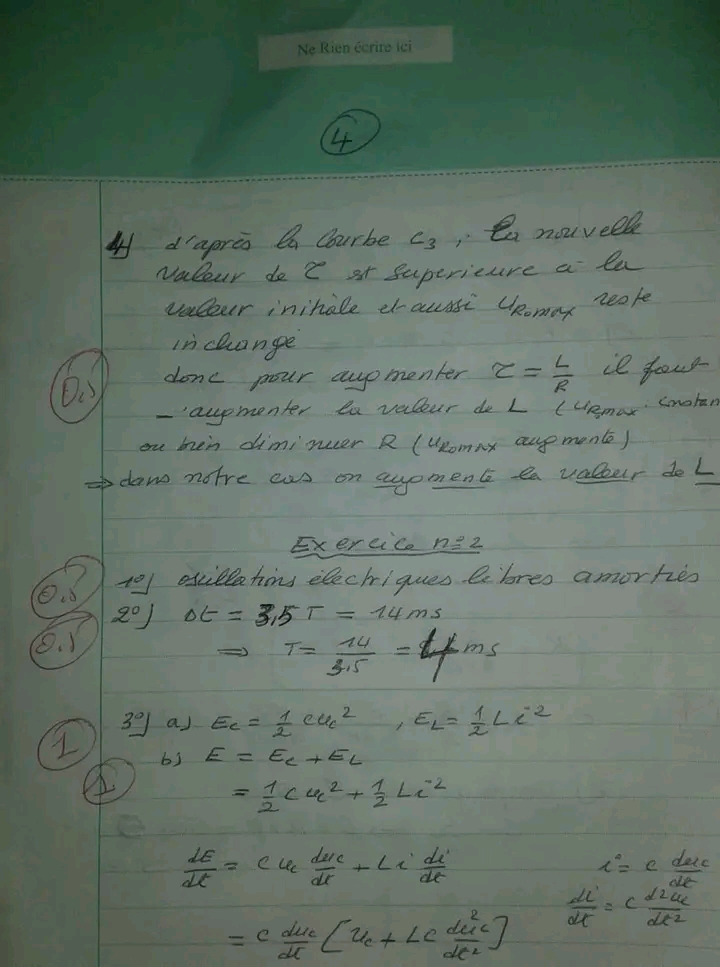 Ne Rien écrire ici
4
4) d'après la courbe C₃, la nouvelle
valeur de τ est superieure à la
valeur initiale et aussi U_R0max reste
inchangé
donc pour augmenter τ = L/R il faut
0,5
- augmenter la valeur de L (U_R0max constan
ou bien diminuer R (U_R0max augmente)
⇒ dans notre cas on augmente la valeur de L
Exercice n=2
0.5 1°) oscillations électriques libres amortiés
0.5 2°) Δt = 3,5 T = 14 ms
⇒ T = 14/3,5 = 4 ms
1 3°) a) Ec = 1/2 cuc² , EL = 1/2 Li²
1 b) E = Ec + EL
= 1/2 c uc² + 1/2 Li²
dE/dt = c uc duc/dt + Li di/dt
i = c duc/dt
di/dt = c d²uc/dt²
= c duc/dt [uc + Lc duc²/dt²]